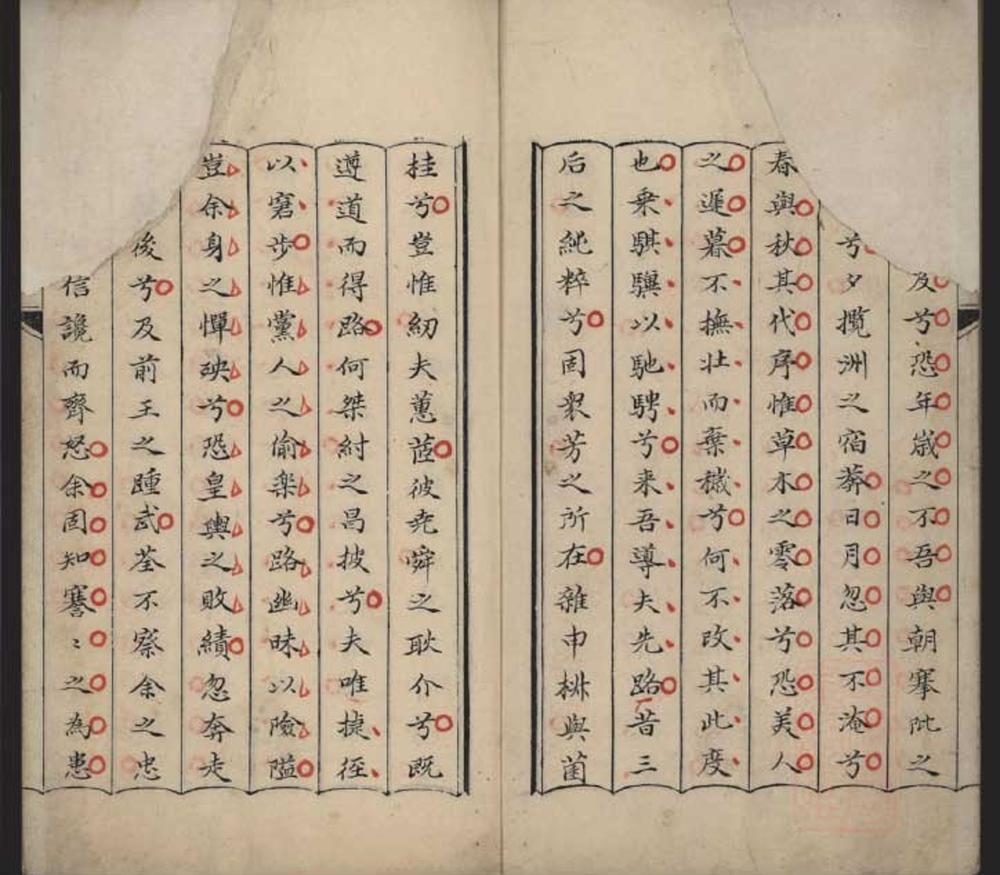 及兮恐年歲之不吾與朝搴阰之
兮夕攬洲之宿莽日月忽其不淹兮
春與秋其代序惟草木之零落兮恐美人
之遲暮不撫壯而棄穢兮何不改其此度
也乘騏驥以馳騁兮来吾導夫先路昔三
后之純粹兮固衆芳之所在雜申椒與菌
桂兮豈惟紉夫蕙茝彼尭舜之耿介兮既
遵道而得路何桀紂之昌披兮夫唯捷徑
以窘步惟黨人之偷楽兮路幽昧以險隘
豈余身之憚殃兮恐皇輿之敗績忽奔走
後兮及前王之踵武荃不察余之忠
信讒而齊怒余固知謇〻之為患